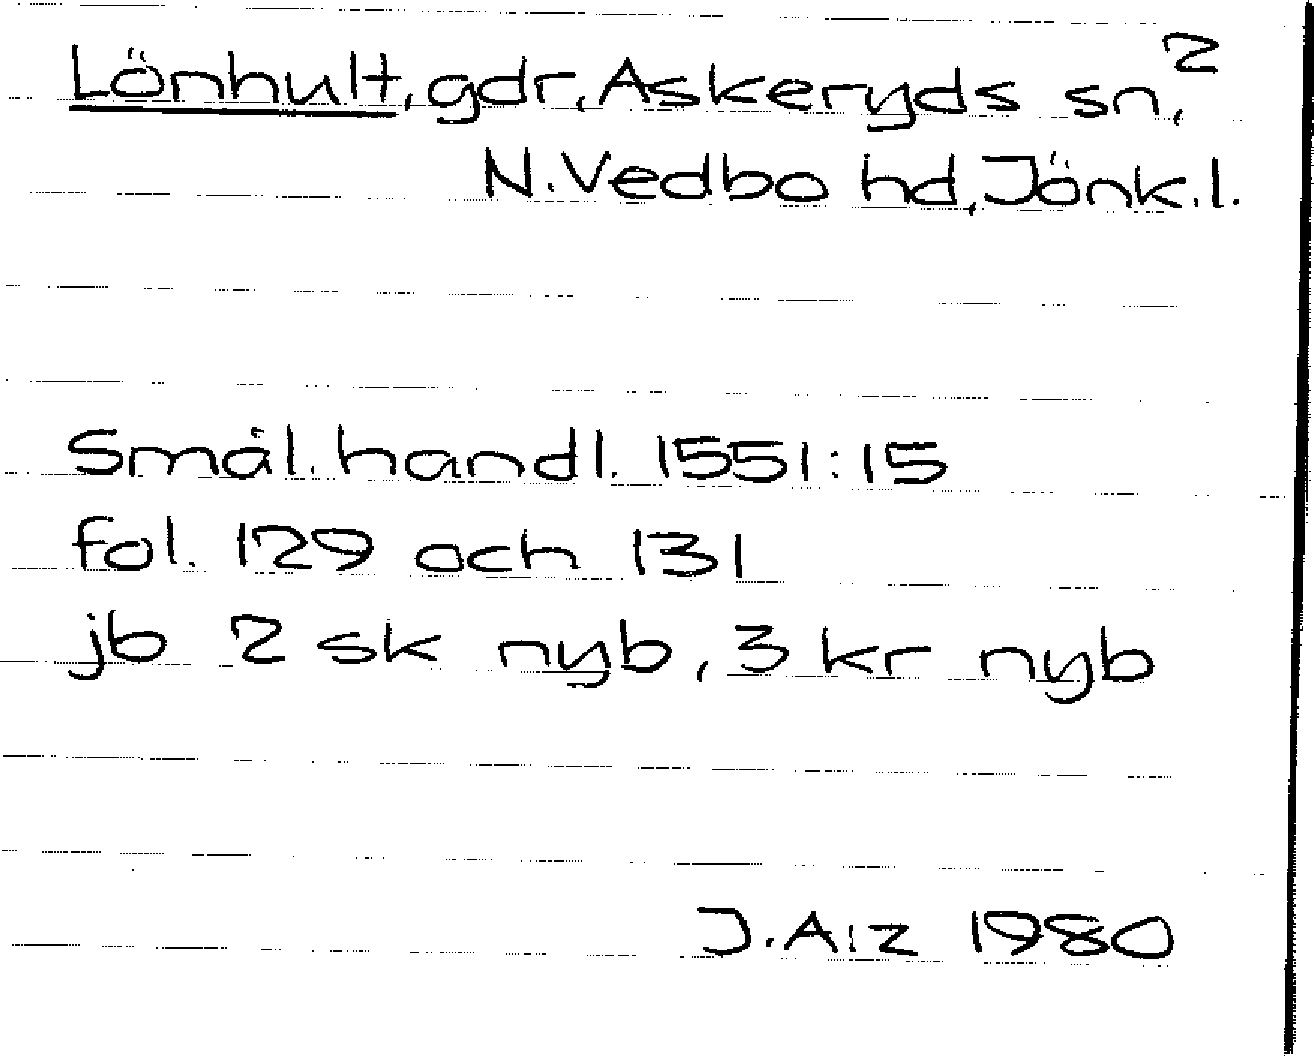 Lönhult, gdr, Askeryds sn, 2
N. Vedbo hd, Jönk. l.
Smål. handl. 1551:15
fol. 129 och 131
jb 2 sk nyb, 3 kr nyb
J. A:z 1980